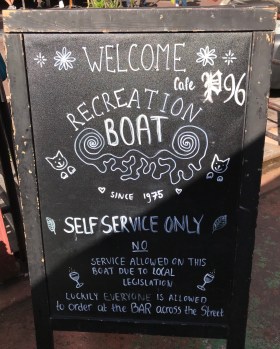 WELCOME
Cafe P96
RECREATION
BOAT
SINCE 1975
SELF SERVICE ONLY
NO
SERVICE ALLOWED ON THIS
BOAT DUE TO LOCAL
LEGISLATION
LUCKILY EVERYONE IS ALLOWED
to ORDER at the BAR across the Street